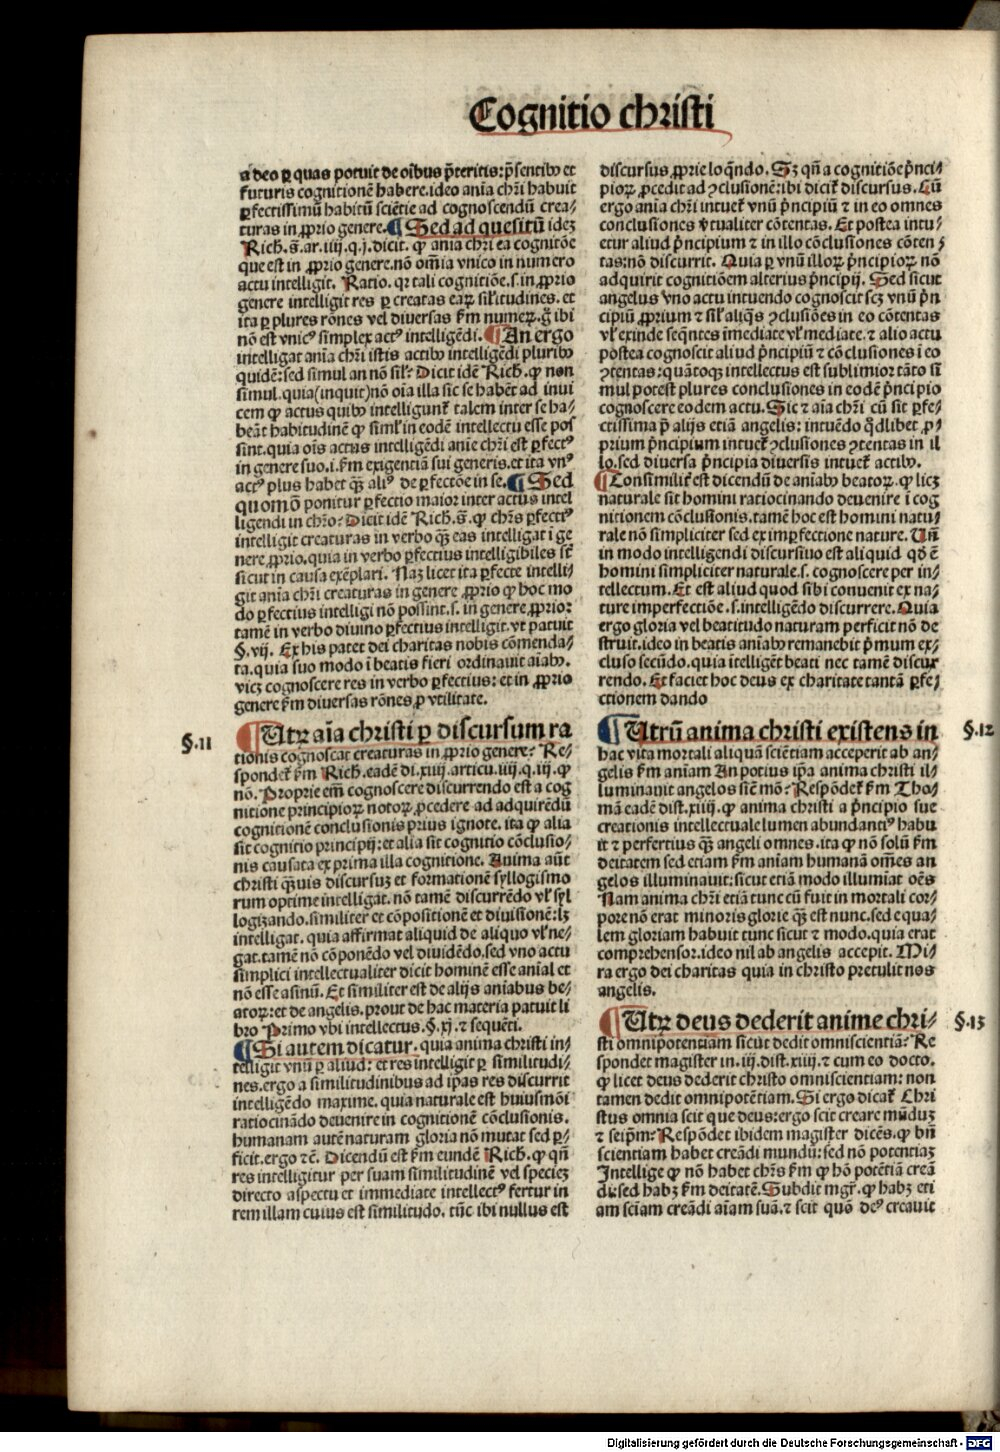 Cognitio christi
a deo ꝑ quas potuit de oĩbus p̃teritis: p̃sentibꝰ et
futuris cognitionẽ habere. ideo anĩa chr̃i habuit
ꝑfectissimũ habitũ sciẽtie ad cognoscendũ crea⸗
turas in ꝓprio genere. ¶ Sed ad quesitũ idez
Rich. s̃. ar. iiij. q. j. dicit. ꝙ anĩa chr̃i ea cognitõe
que est in ꝓprio genere. nõ om̃ia vnico in numero
actu intelligit. Ratio. qꝛ tali cognitiõe. s. in ꝓprio
genere intelligit res ꝑ creatas eaꝝ sil̃itudines. et
ita ꝑ plures rõnes vel diuersas s̃m numeꝝ. g̃ ibi
nõ est vnicꝰ simplex actꝰ intelligẽdi. ¶ An ergo
intelligat anĩa chr̃i istis actibꝰ intelligẽdi pluribꝰ
quidẽ: sed simul an nõ sil̃? Dicit idẽ Rich. ꝙ non
simul. quia (inquit) nõ oĩa illa sic se habẽt ad inui
cem ꝙ actus quibꝰ intelligunt᷑ talem inter se ha⸗
beãt habitudinẽ ꝙ simĺ in eodẽ intellectu esse pos
sint. quia oĩs actus intelligẽdi anĩe chr̃i est ꝑfectꝰ
in genere suo. i. s̃m exigentiã sui generis. et ita vnꝰ
actꝰ plus habet qᷓꝫ aliꝰ de ꝑfectõe in se. ¶ Sed
quomõ ponitur ꝑfectio maior inter actus intel
ligendi in chr̃o? Dicit idẽ Rich. s̃. ꝙ chr̃s ꝑfectiꝰ
intelligit creaturas in verbo qᷓꝫ eas intelligat ĩ ge
nere ꝓprio. quia in verbo ꝑfectius intelligibiles st̃
sicut in causa exẽplari. Naꝫ licet ita ꝑfecte intelli⸗
git anĩa chr̃i creaturas in genere ꝓprio ꝙ hoc mo
do ꝑfectius intelligi nõ possint. s. in genere ꝓprio:
tamẽ in verbo diuino ꝑfectius intelligit. vt patuit
§. vij. Ex his patet dei charitas nobis cõmenda⸗
ta. quia suo modo ĩ beatis fieri ordinauit aĩabꝰ.
vicꝫ cognoscere res in verbo ꝑfectius: et in ꝓprio
genere s̃m diuersas rõnes ꝓ vtilitate.
§. 11
¶ Utꝝ aĩa christi ꝑ discursum ra
tionis cognoscat creaturas in ꝓprio genere? Re⸗
spondet᷑ s̃m Rich. eadẽ di. xiiij. articu. iiij. q. iij. ꝙ
nõ. Proprie em̃ cognoscere discurrendo est a cog
nitione principioꝝ notoꝝ ꝓcedere ad adquirẽdũ
cognitionẽ conclusionis prius ignote. ita ꝙ alia
sit cognitio principij: et alia sit cognitio cõclusio⸗
nis causata ex prima illa cognitione. Anima aũt
christi qᷓꝫuis discursuꝫ et formationẽ syllogismo
rum optime intelligat. nõ tamẽ discurrẽdo vĺ syl
logizando. similiter et cõpositionẽ et diuisionẽ: lꝫ
intelligat. quia affirmat aliquid de aliquo vĺ ne⸗
gat. tamẽ nõ cõponẽdo vel diuidẽdo. sed vno actu
simplici intellectualiter dicit hominẽ esse anĩal et
nõ esse asinũ. Et similiter est de alijs anĩabus be⸗
atoꝝ: et de angelis. prout de hac materia patuit li
bro Primo vbi intellectus. §. xj. ⁊ sequẽti.
¶ Si autem dicatur. quia anima christi in⸗
telligit vnũ ꝑ aliud: et res intelligit ꝑ similitudi⸗
nes. ergo a similitudinibus ad ip̃as res discurrit
intelligẽdo maxime. quia naturale est huiusmõi
ratiocinãdo deuenire in cognitionẽ cõclusionis.
humanam autẽ naturam gloria nõ mutat sed ꝑ⸗
ficit. ergo ⁊c̃. Dicendũ est s̃m eundẽ Rich. ꝙ qñ
res intelligitur per suam similitudinẽ vel specieꝫ
directo aspectu et immediate intellectꝰ fertur in
rem illam cuius est similitudo. tũc ibi nullus est
discursus ꝓprie loqñdo. Sꝫ qñ a cognitiõe p̃nci⸗
pioꝝ ꝓcedit ad ꝯclusionẽ: ibi dicit᷑ discursus. Cũ
ergo anĩa chr̃i intuet᷑ vnũ p̃ncipiũ ⁊ in eo omnes
conclusiones v̓tualiter cõtentas. Et postea intu⸗
etur aliud p̃ncipium ⁊ in illo cõclusiones cõten⸗
tas: nõ discurrit. Quia ꝑ vnũ illoꝝ p̃ncipioꝝ nõ
adquirit cognitiõem alterius p̃ncipij. Sed sicut
angelus vno actu intuendo cognoscit scꝫ vnũ p̃n
cipiũ ꝓprium ⁊ sil̃ aliq̃s ꝯclusiões in eo cõtentas
vĺ exinde seq̃ntes ĩmediate vĺ mediate. ⁊ alio actu
postea cognoscit aliud p̃ncipiũ ⁊ cõclusiones ĩ eo
ꝯtentas: quãtoqꝫ intellectus est sublimior tãto si
mul potest plures conclusiones in eodẽ p̃ncipio
cognoscere eodem actu. Sic ⁊ aĩa chr̃i cũ sit ꝑfe⸗
ctissima p̃ alijs etiã angelis: intuẽdo qd̃libet ꝓ⸗
prium p̃ncipium intuet᷑ ꝯclusiones ꝯtentas in il
lo. sed diuersa p̃ncipia diuersis intuet᷑ actibꝰ.
¶ Consimilit᷑ est dicendũ de anĩabꝰ beatoꝝ. ꝙ licꝫ
naturale sit homini ratiocinando deuenire ĩ cog
nitionem cõclusionis. tamẽ hoc est homini natu⸗
rale nõ simpliciter sed ex imperfectione nature. Uñ
in modo intelligendi discursiuo est aliquid qd̃ ẽ
homini simpliciter naturale. s. cognoscere per in⸗
tellectum. Et est aliud quod sibi conuenit ex na⸗
ture imperfectiõe. s. intelligẽdo discurrere. Quia
ergo gloria vel beatitudo naturam perficit nõ de
struit. ideo in beatis anĩabꝰ remanebit p̃mum ex⸗
cluso secũdo. quia ĩtelligẽt beati nec tamẽ discur
rendo. Et faciet hoc deus ex charitate tantã ꝑfe⸗
ctionem dando
¶ Utrũ anima christi existens in
§. 12
hac vita mortali aliquã sciẽtiam acceperit ab an⸗
gelis s̃m anĩam An potius ip̃a anima christi il⸗
luminauit angelos siẽ mõ? Respõdet᷑ s̃m Tho⸗
mã eadẽ dist. xiiij. ꝙ anima christi a p̃ncipio sue
creationis intellectuale lumen abundantiꝰ habu
it ⁊ perfectius qᷓꝫ angeli omnes. ita ꝙ nõ solũ s̃m
deitatem sed etiam s̃m anĩam humanã om̃es an
gelos illuminauit: sicut etiã modo illumĩat oẽs
Nam anima chr̃i etiã tunc cũ fuit in mortali cor⸗
pore nõ erat minoris glorie qᷓꝫ est nunc. sed equa⸗
lem gloriam habuit tunc sicut ⁊ modo. quia erat
comprehensor. ideo nil ab angelis accepit. Mi⸗
ra ergo dei charitas quia in christo pretulit nos
angelis.
¶ Utꝝ deus dederit anime chri⸗
§. 13
sti omnipotentiam sicut dedit omniscientiã? Re
spondet magister in. iij. dist. xiiij. ⁊ cum eo docto.
ꝙ licet deus dederit christo omniscientiam: non
tamen dedit omnipotẽtiam. Si ergo dicat᷑ Chri
stus omnia scit que deus: ergo scit creare mũduꝫ
⁊ seip̃m? Respõdet ibidem magister dicẽs. ꝙ bñ
scientiam habet creãdi mundũ: sed nõ potentiaꝫ
Intellige ꝙ nõ habet chr̃s s̃m ꝙ hõ potẽtiã creã
di: sed habꝫ s̃m deitatẽ. Subdit mgr̃. ꝙ habꝫ eti
am sciam creãdi aĩam suã. ⁊ scit quõ deꝰ creauit
Digitalisierung gefördert durch die Deutsche Forschungsgemeinschaft - DFG